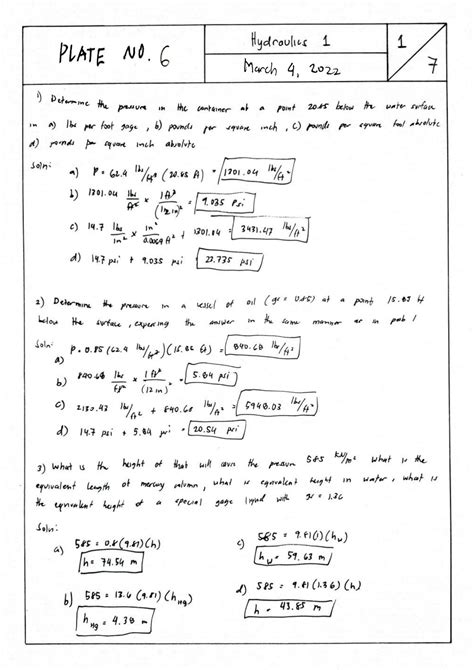 PLATE NO. 6
Hydraulics 1
March 4, 2022
1/7
1) Determine the pressure in the container at a point 20.85 below the water surface
in a) lbs per foot gage, b) pounds per square inch, c) pounds per square foot absolute
d) pounds per square inch absolute
Soln:
a) P = 62.4 lbs/ft³ (20.85 ft) = 1301.04 lbs/ft²
b) 1301.04 lbs/ft² × 1ft²/(12in)² = 9.035 Psi
c) 14.7 lbs/in² × in²/0.0069 ft² + 1301.04 = 3431.47 lbs/ft²
d) 14.7 psi + 9.035 psi = 23.735 psi
2) Determine the pressure in a vessel of oil (gs = 0.85) at a point 15.85 ft
below the surface, expressing the answer in the same manner as in prob 1
Soln:
a) P = 0.85 (62.4 lbs/ft³)(15.85 ft) = 840.68 lbs/ft²
b) 840.68 lbs/ft² × 1ft²/(12in)² = 5.84 psi
c) 2130.43 lbs/ft² + 840.68 lbs/ft² = 5948.03 lbs/ft²
d) 14.7 psi + 5.84 psi = 20.54 psi
3) What is the height of that will cause the pressure 585 kN/m² What is the
equivalent length of mercury column, what is equivalent height in water, what is
the equivalent height of a special gage liquid with gs = 1.36
Soln:
a) 585 = 0.8 (9.81)(h)
h = 74.54 m
b) 585 = 13.6 (9.81)(hHg)
hHg = 4.38 m
c) 585 = 9.81(1)(hw)
hw = 59.63 m
d) 585 = 9.81(1.36)(h)
h = 43.85 m